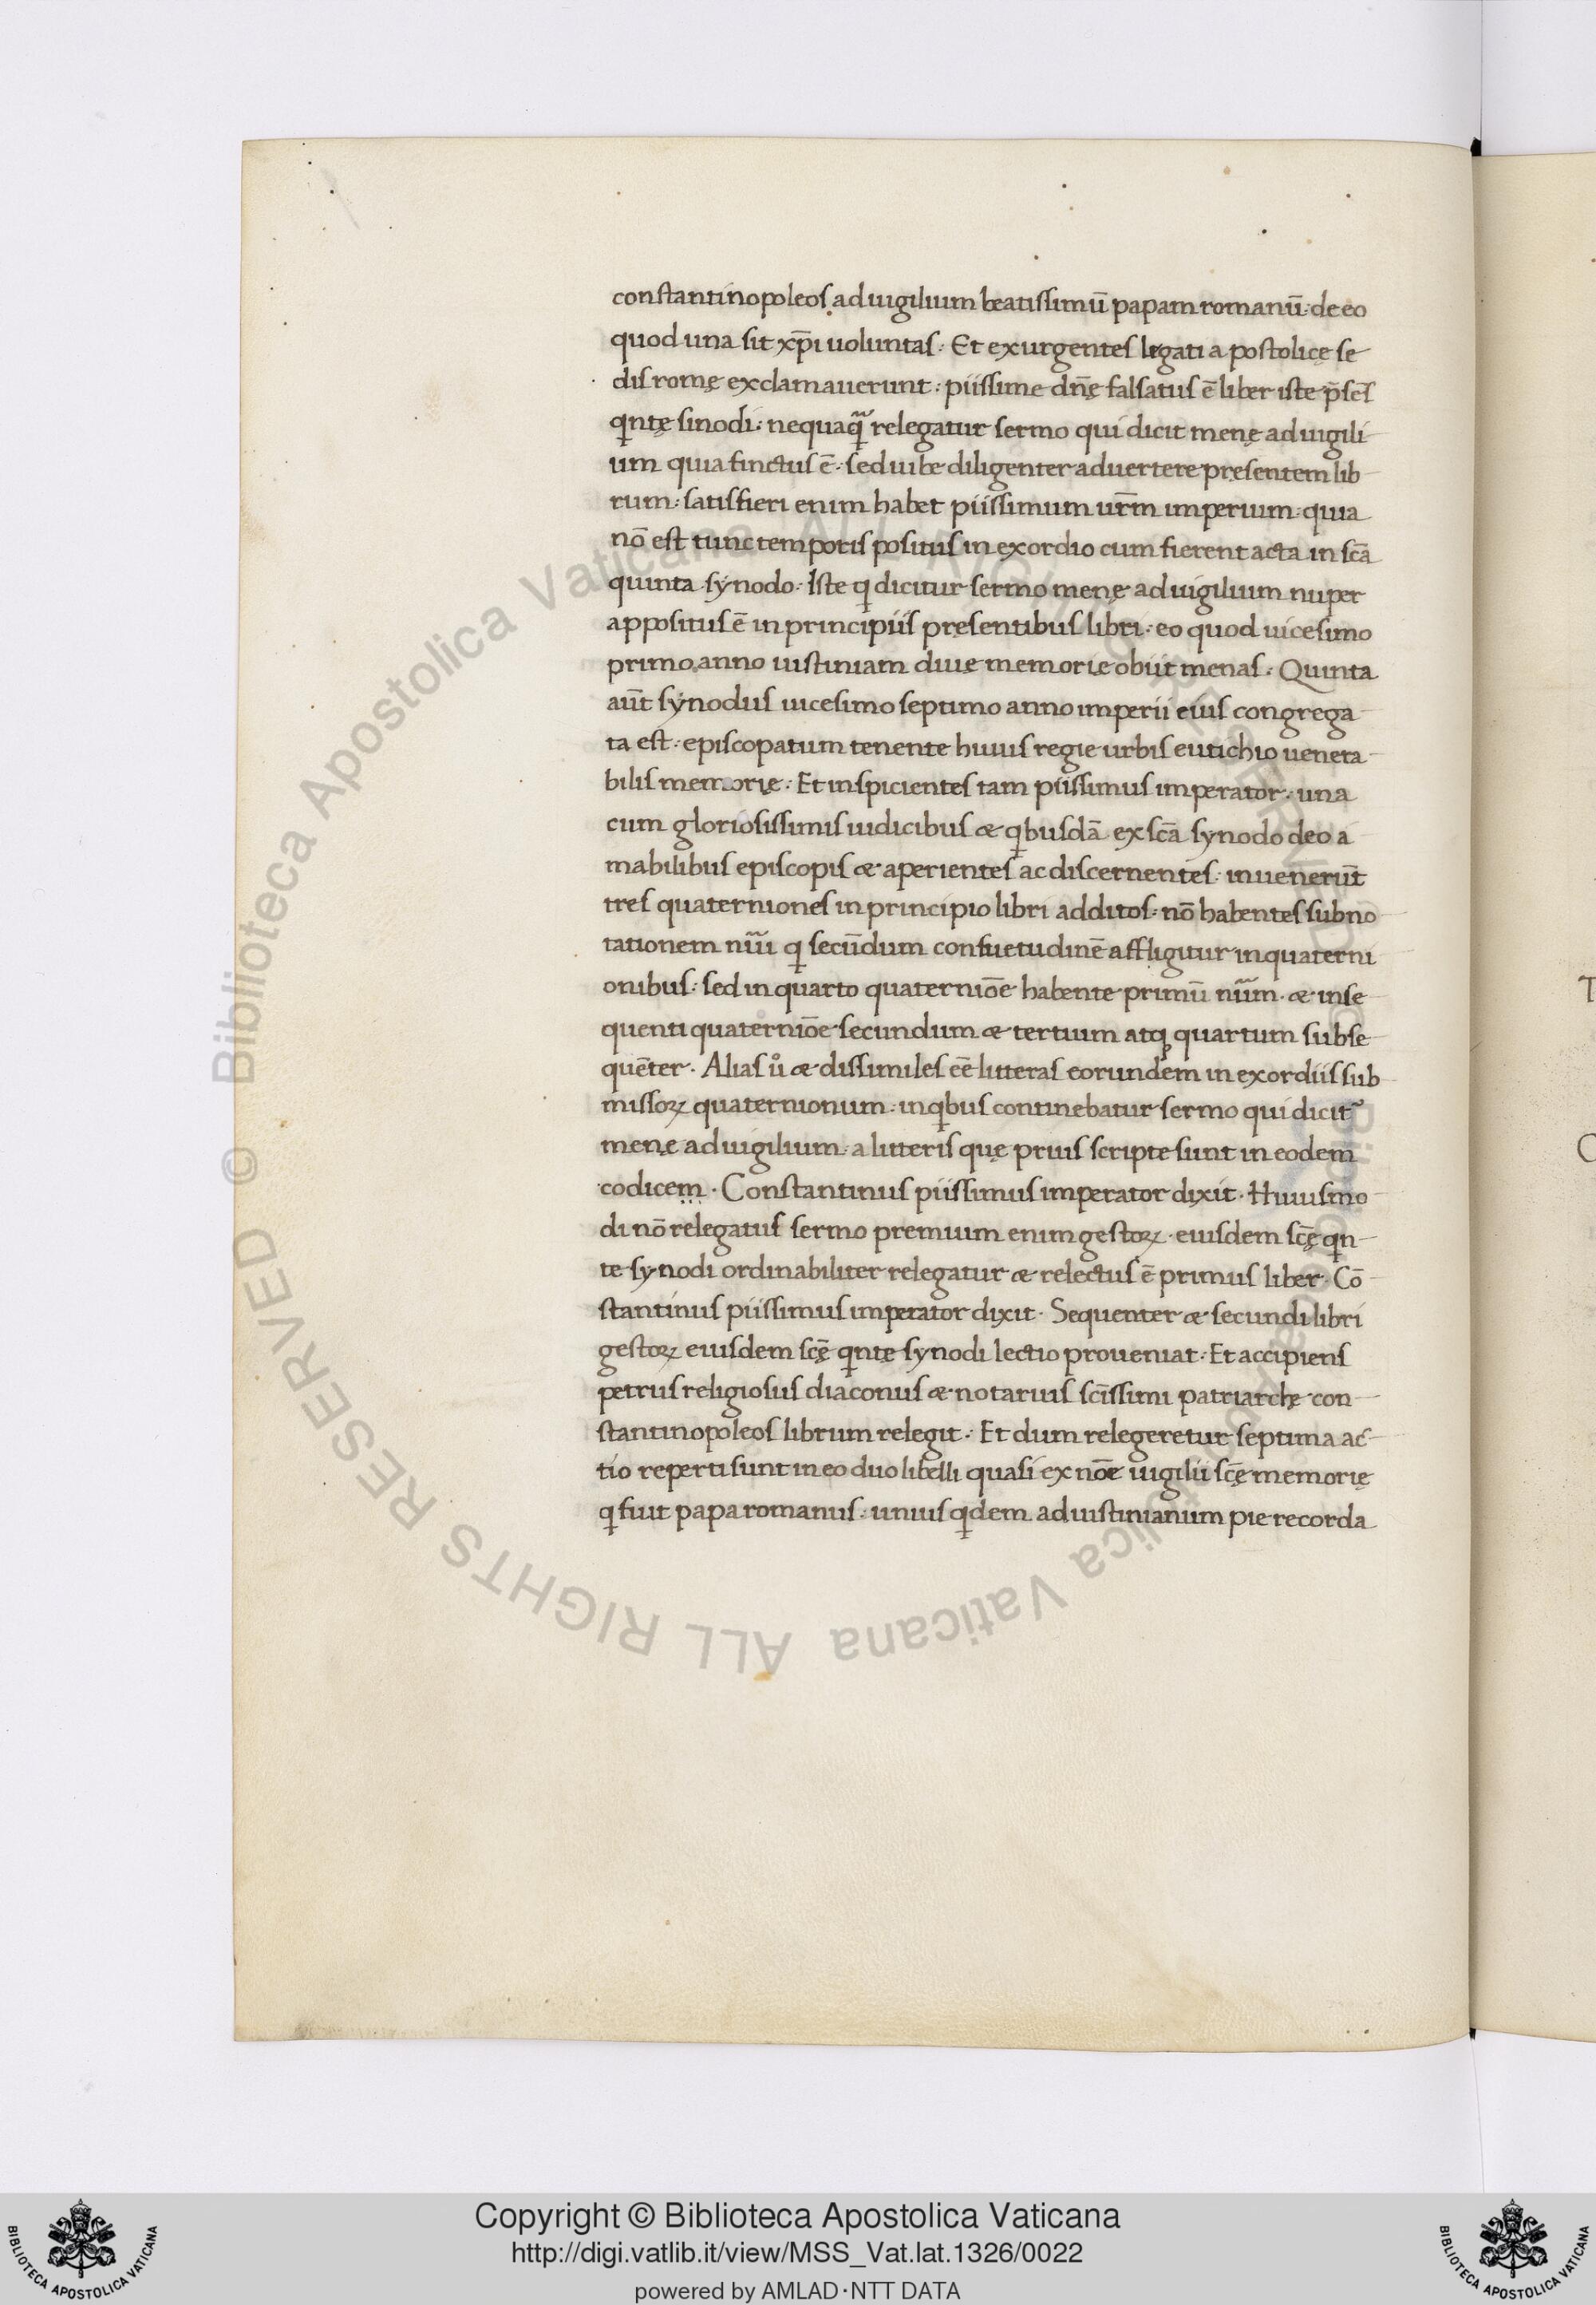 constantinopoleos ad uigilium beatissimū papam romanū: de eo
quod una sit xp̄i uoluntas: Et exurgentes legati apostolicę se
dis romę exclamauerunt: piissime dn̄ę falsatus ē liber iste p̄ses
qntę sinodi: nequaq̄ relegatur sermo qui dicit menę ad uigili
um quia finctus ē: sed iube diligenter aduertere pręsentem lib
rum: satisfieri enim habet piissimum ur̄m imperium: quia
nō est tunc temporis positus in exordio cum fierent acta in scā
quinta synodo: Iste q dicitur sermo menę ad uigilium nuper
appositus ē in principiis pręsentibus libri: eo quod uicesimo
primo anno iustiniam diuę memorię obiit menas: Quinta
aūt synodus uicesimo septimo anno imperii eius congrega
ta est: episcopatum tenente huius regie urbis eutichio uenera
bilis memorię: Et inspicientes tam piissimus imperator: una
cum gloriosissimis iudicibus æ qbusdā ex scā synodo deo a
mabilibus episcopis æ aperientes ac discernentes: inuenerūt
tres quaterniones in principio libri additos: nō habentes subno
tationem nūi q secūdum consuetudinē affligitur in quaterni
onibus: sed in quarto quaterniōe habente primū nūm. æ in se
quenti quaterniōe secundum æ tertium atq; quartum subse
quēter. Alias ů æ dissimiles eē litteras eorundem in exordiis sub
missoꝝ quaternionum: in qbus continebatur sermo qui dicit̃
menę ad uigilium a litteris quę prius scripte sunt in eodem
codicem. Constantinus piissimus imperator dixit. Huiusmo
di nō relegatus sermo premium enim gestoꝝ. eiusdem scę̄ qn
te synodi ordinabiliter relegatur æ relectus ē primus liber. Cō
stantinus piissimus imperator dixit. Sequenter æ secundi libri
gestoꝝ eiusdem scę̄ qnte synodi lectio proueniat: Et accipiens
petrus religiosus diaconus æ notarius scīssimi patriarchę con
stantinopoleos librum relegit: Et dum relegeretur septima ac
tio reperti sunt in eo duo libelli quasi ex nōe uigilii scę̄ memorię
q fuit papa romanus: unius qdem ad iustinianum pie recorda
© Biblioteca Apostolica Vaticana ALL RIGHTS RESERVED
Copyright © Biblioteca Apostolica Vaticana
http://digi.vatlib.it/view/MSS_Vat.lat.1326/0022
powered by AMLAD·NTT DATA
BIBLIOTECA APOSTOLICA VATICANA
BIBLIOTECA APOSTOLICA VATICANA